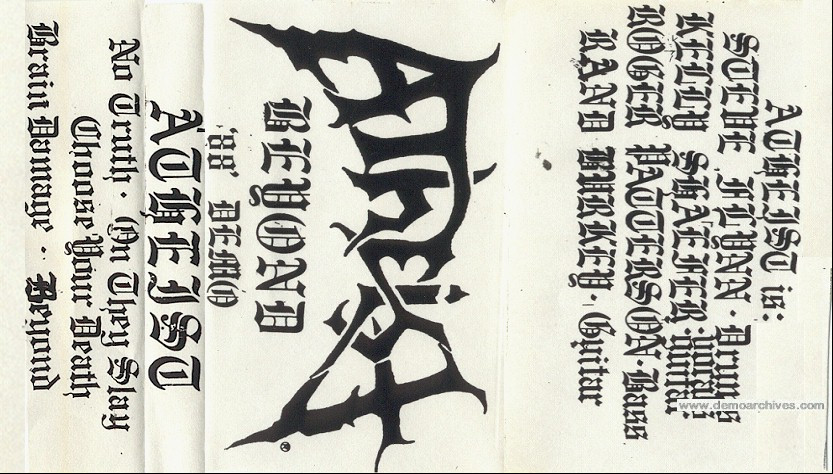 ATHEIST is:
STEVE FLYNN · Drums
KELLY SHAEFER · vocals guitar
ROGER PATTERSON · Bass
RAND BURKEY · Guitar
ATHEIST ®
BEYOND
'88' DEMO
ATHEIST
No Truth · On They Slay
Choose Your Death
Brain Damage · Beyond
www.demoarchives.com